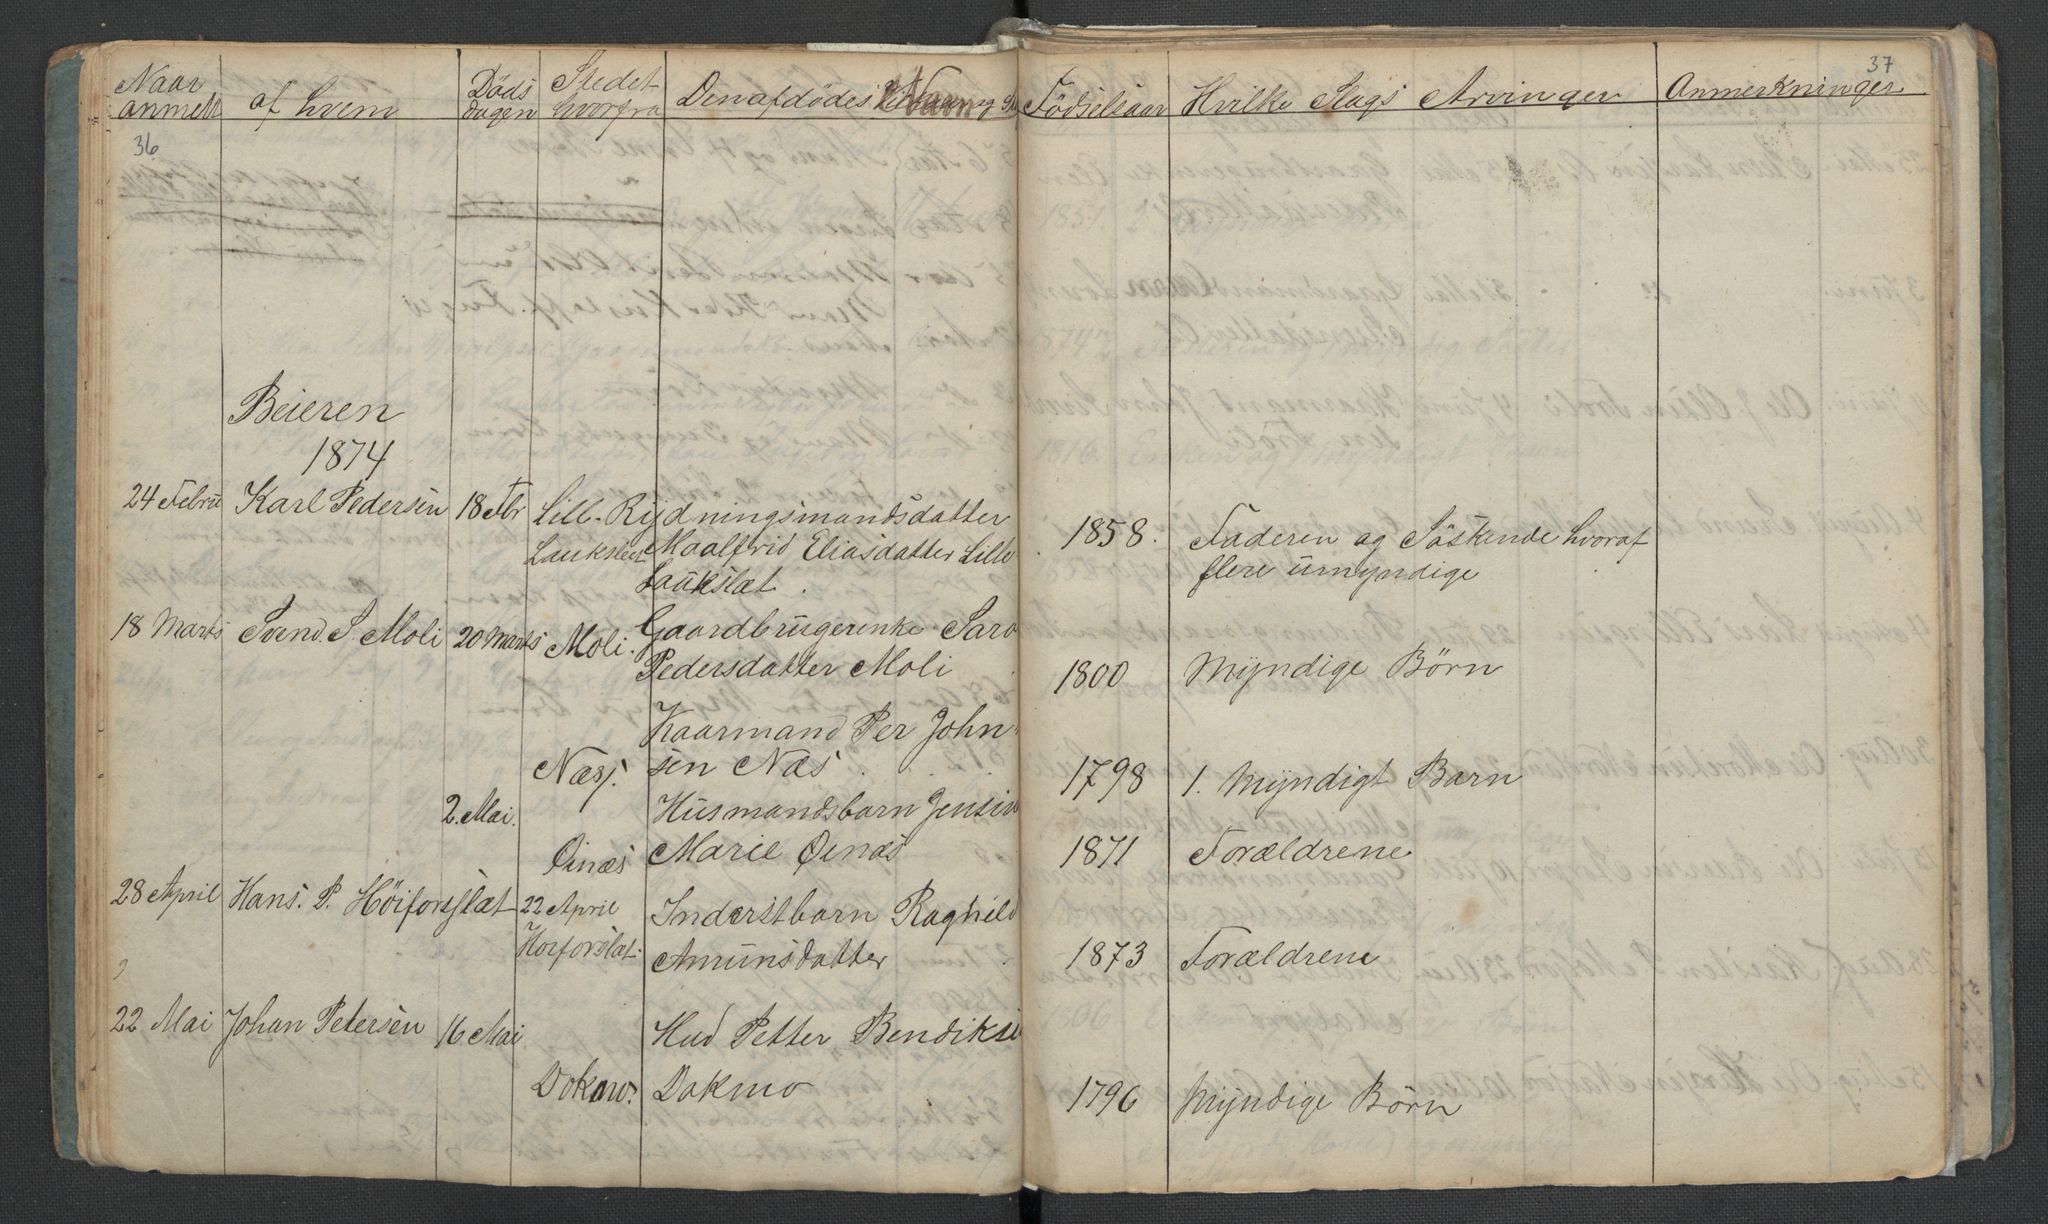 Naar anmeldt | af hvem | Døds dagen | Stedet hvorfra | Den afdødes Navn | Fødselsaar | Hvilke Slags Arvinger | Anmerkninger
36
37
Beieren
1874
24 Febru | Karl Pedersen | 18 Fbr | Lill- | Rydningsmandsdatter
Laukslet | Maalfrid Eliasdatter Lille | 1858. | Faderen og Søskende hvoraf
Laukslæt. | flere umyndige
18 Marts | Svend S. Moli | 20 Marts | Moli. | Gaardbrugerenke Sara
Pedersdatter Moli | 1800 | Myndige Børn
Kaarmand Per John-
Næsj. | sen Næs | 1798 | 1. Myndigt Barn
2. Mai. | Husmandsbarn Jensin
Øinæs | Marie Øinæs | 1871 | Forældrene
28 April | Hans. P. Høiforsslæt | 22 April | Inderstbarn Raghild
Horforslæt. | Amunsdatter | 1873 | Forældrene
22 Mai | Johan Petersen | 16 Mai | Hud Petter Bendikse
Dokmo. | Dokmo | 1796 | Myndige Børn